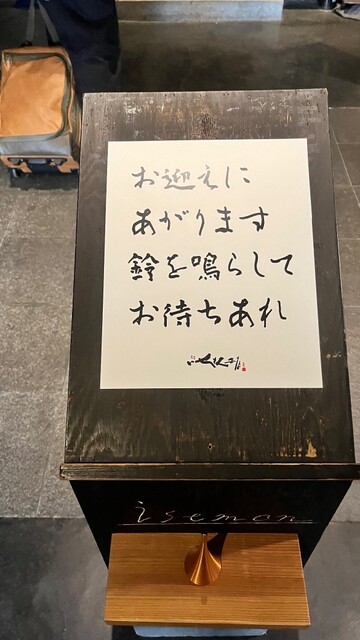 お迎えに
あがります
鈴を鳴らして
お待ちあれ
isemon